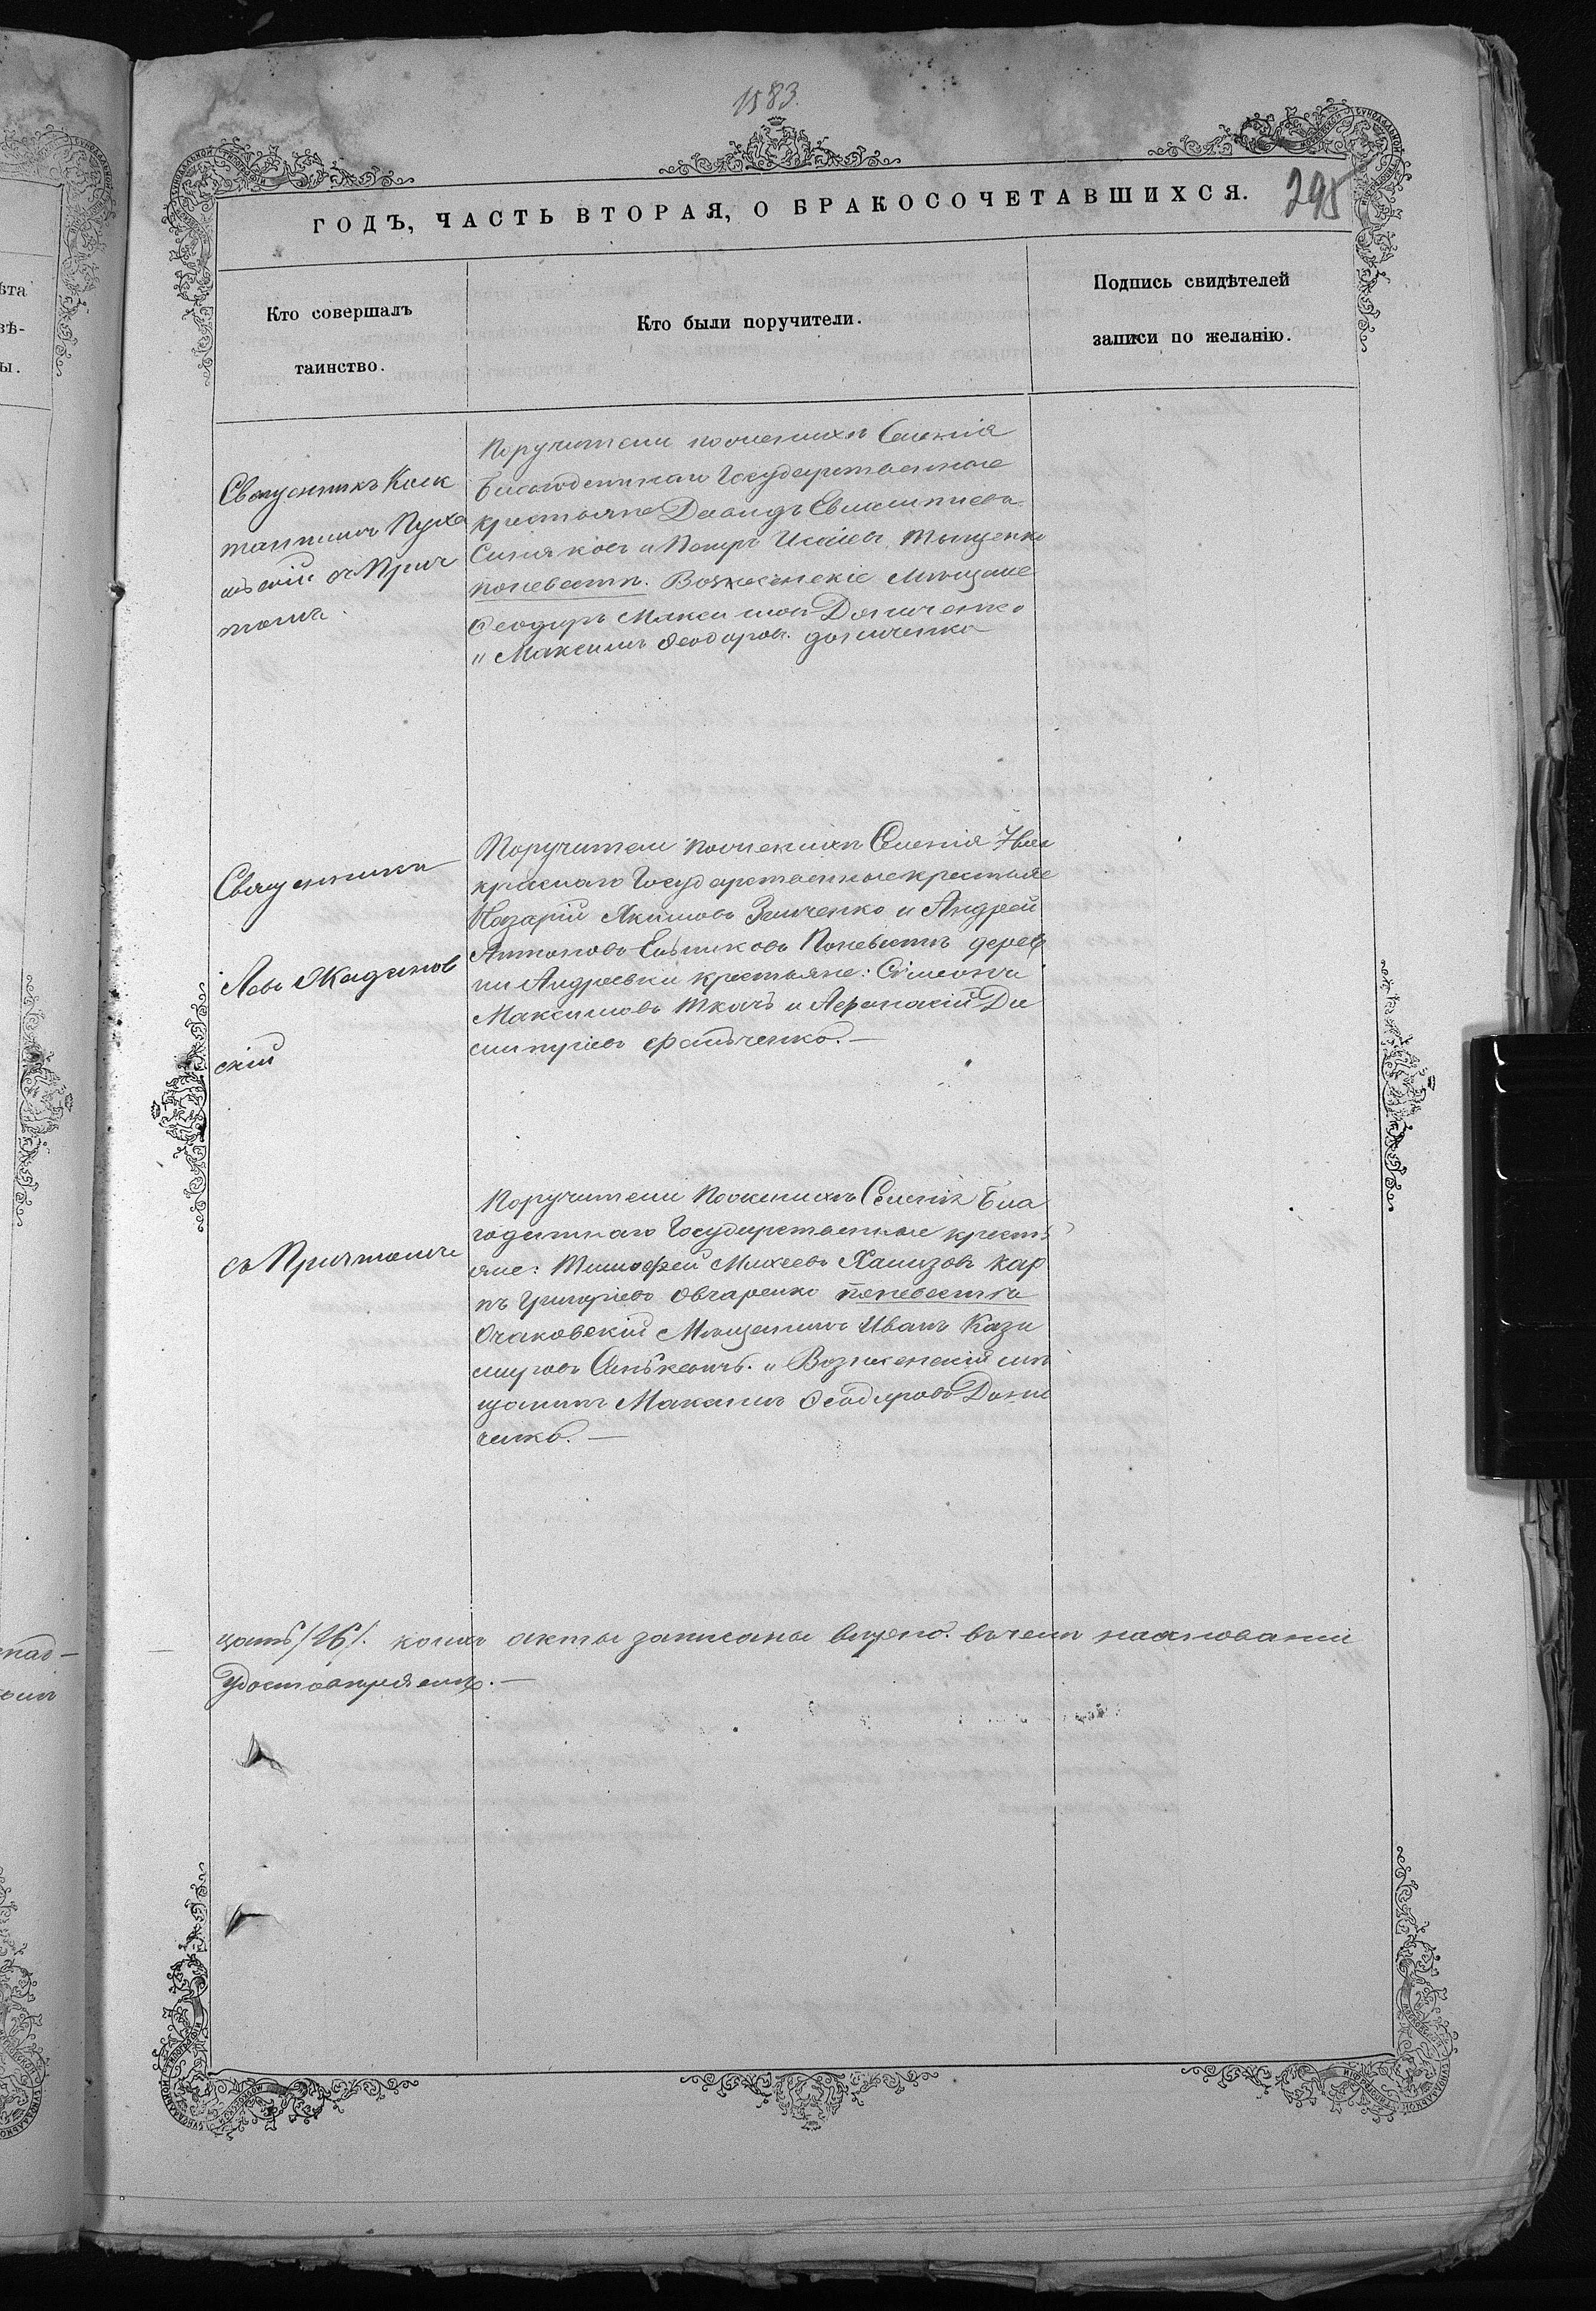 1583.
295
ГОДЪ, ЧАСТЬ ВТОРАЯ, О БРАКОСОЧЕТАВШИХСЯ.
Кто совершалъ
таинство.
Кто были поручители.
Подпись свидѣтелей
записи по желанію.
Священникъ Конс
тантинъ
съ Прич
томъ.
Поручители по женихѣ Селенія
Благодатнаго Государственные
крестьяне Давидъ
Синяковъ и Петръ Исаіевъ Тыщенко
по невестѣ. Вознесенскіе Мѣщане
Ѳеодоръ Максимовъ Донченко
и Максимъ Ѳеодоровъ Донченко
Священникъ
Левъ Жаданов
скій
съ Причтомъ
Поручители по женихѣ Селенія Ново
краснаго Государственные крестьяне
Назарій Якимовъ Зинченко и Андрей
Антоновъ По невестѣ дерев
ни Андреевки крестьяне: Симеонъ
Максимовъ Ткачъ и Афанасій Ди
митріевъ
Поручители По женихѣ Селенія Бла
годатнаго Государственные кресть
яне: Тимофей Михеевъ Кар
пъ Григоріевъ Овчаренко по невестѣ
Очаковскій Мѣщанинъ Иванъ Кази
мировъ и Вознесенскій мѣ
щанинъ Максимъ Ѳеодоровъ Дон
ченко. —
цать /16/. коихъ акты записаны вѣрно. въ чемъ
удостовѣряемъ. —